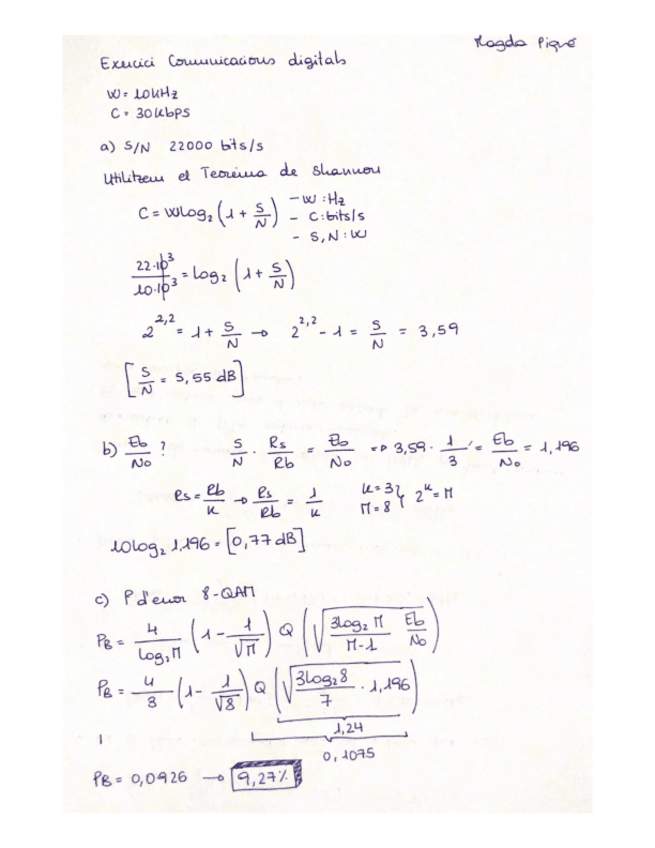 Magda Piqué
Exercici Comunicacions digitals
W = 10kHz
C = 30kbps
a) S/N 22000 bits/s
Utilitzem el Teorema de Shannon
C = W log₂ (1 + S/N) - W : Hz
- C : bits/s
- S, N : W
22·10³ / 10·10³ = log₂ (1 + S/N)
2^2,2 = 1 + S/N → 2^2,2 - 1 = S/N = 3,59
[S/N = 5,55 dB]
b) Eb/No ? S/N · Rs/Rb = Eb/No => 3,59 · 1/3 = Eb/No = 1,196
Rs = Rb/k → Rs/Rb = 1/k k = 3 M = 8 } 2^k = M
10log₂ 1,196 = [0,77 dB]
c) P d'error 8-QAM
PB = 4/log₂M (1 - 1/√M) Q (√(3log₂ M / M-1 · Eb/No))
PB = 4/3 (1 - 1/√8) Q (√(3log₂8 / 7 · 1,196))
1,24
0,1075
PB = 0,0926 → 9,27%